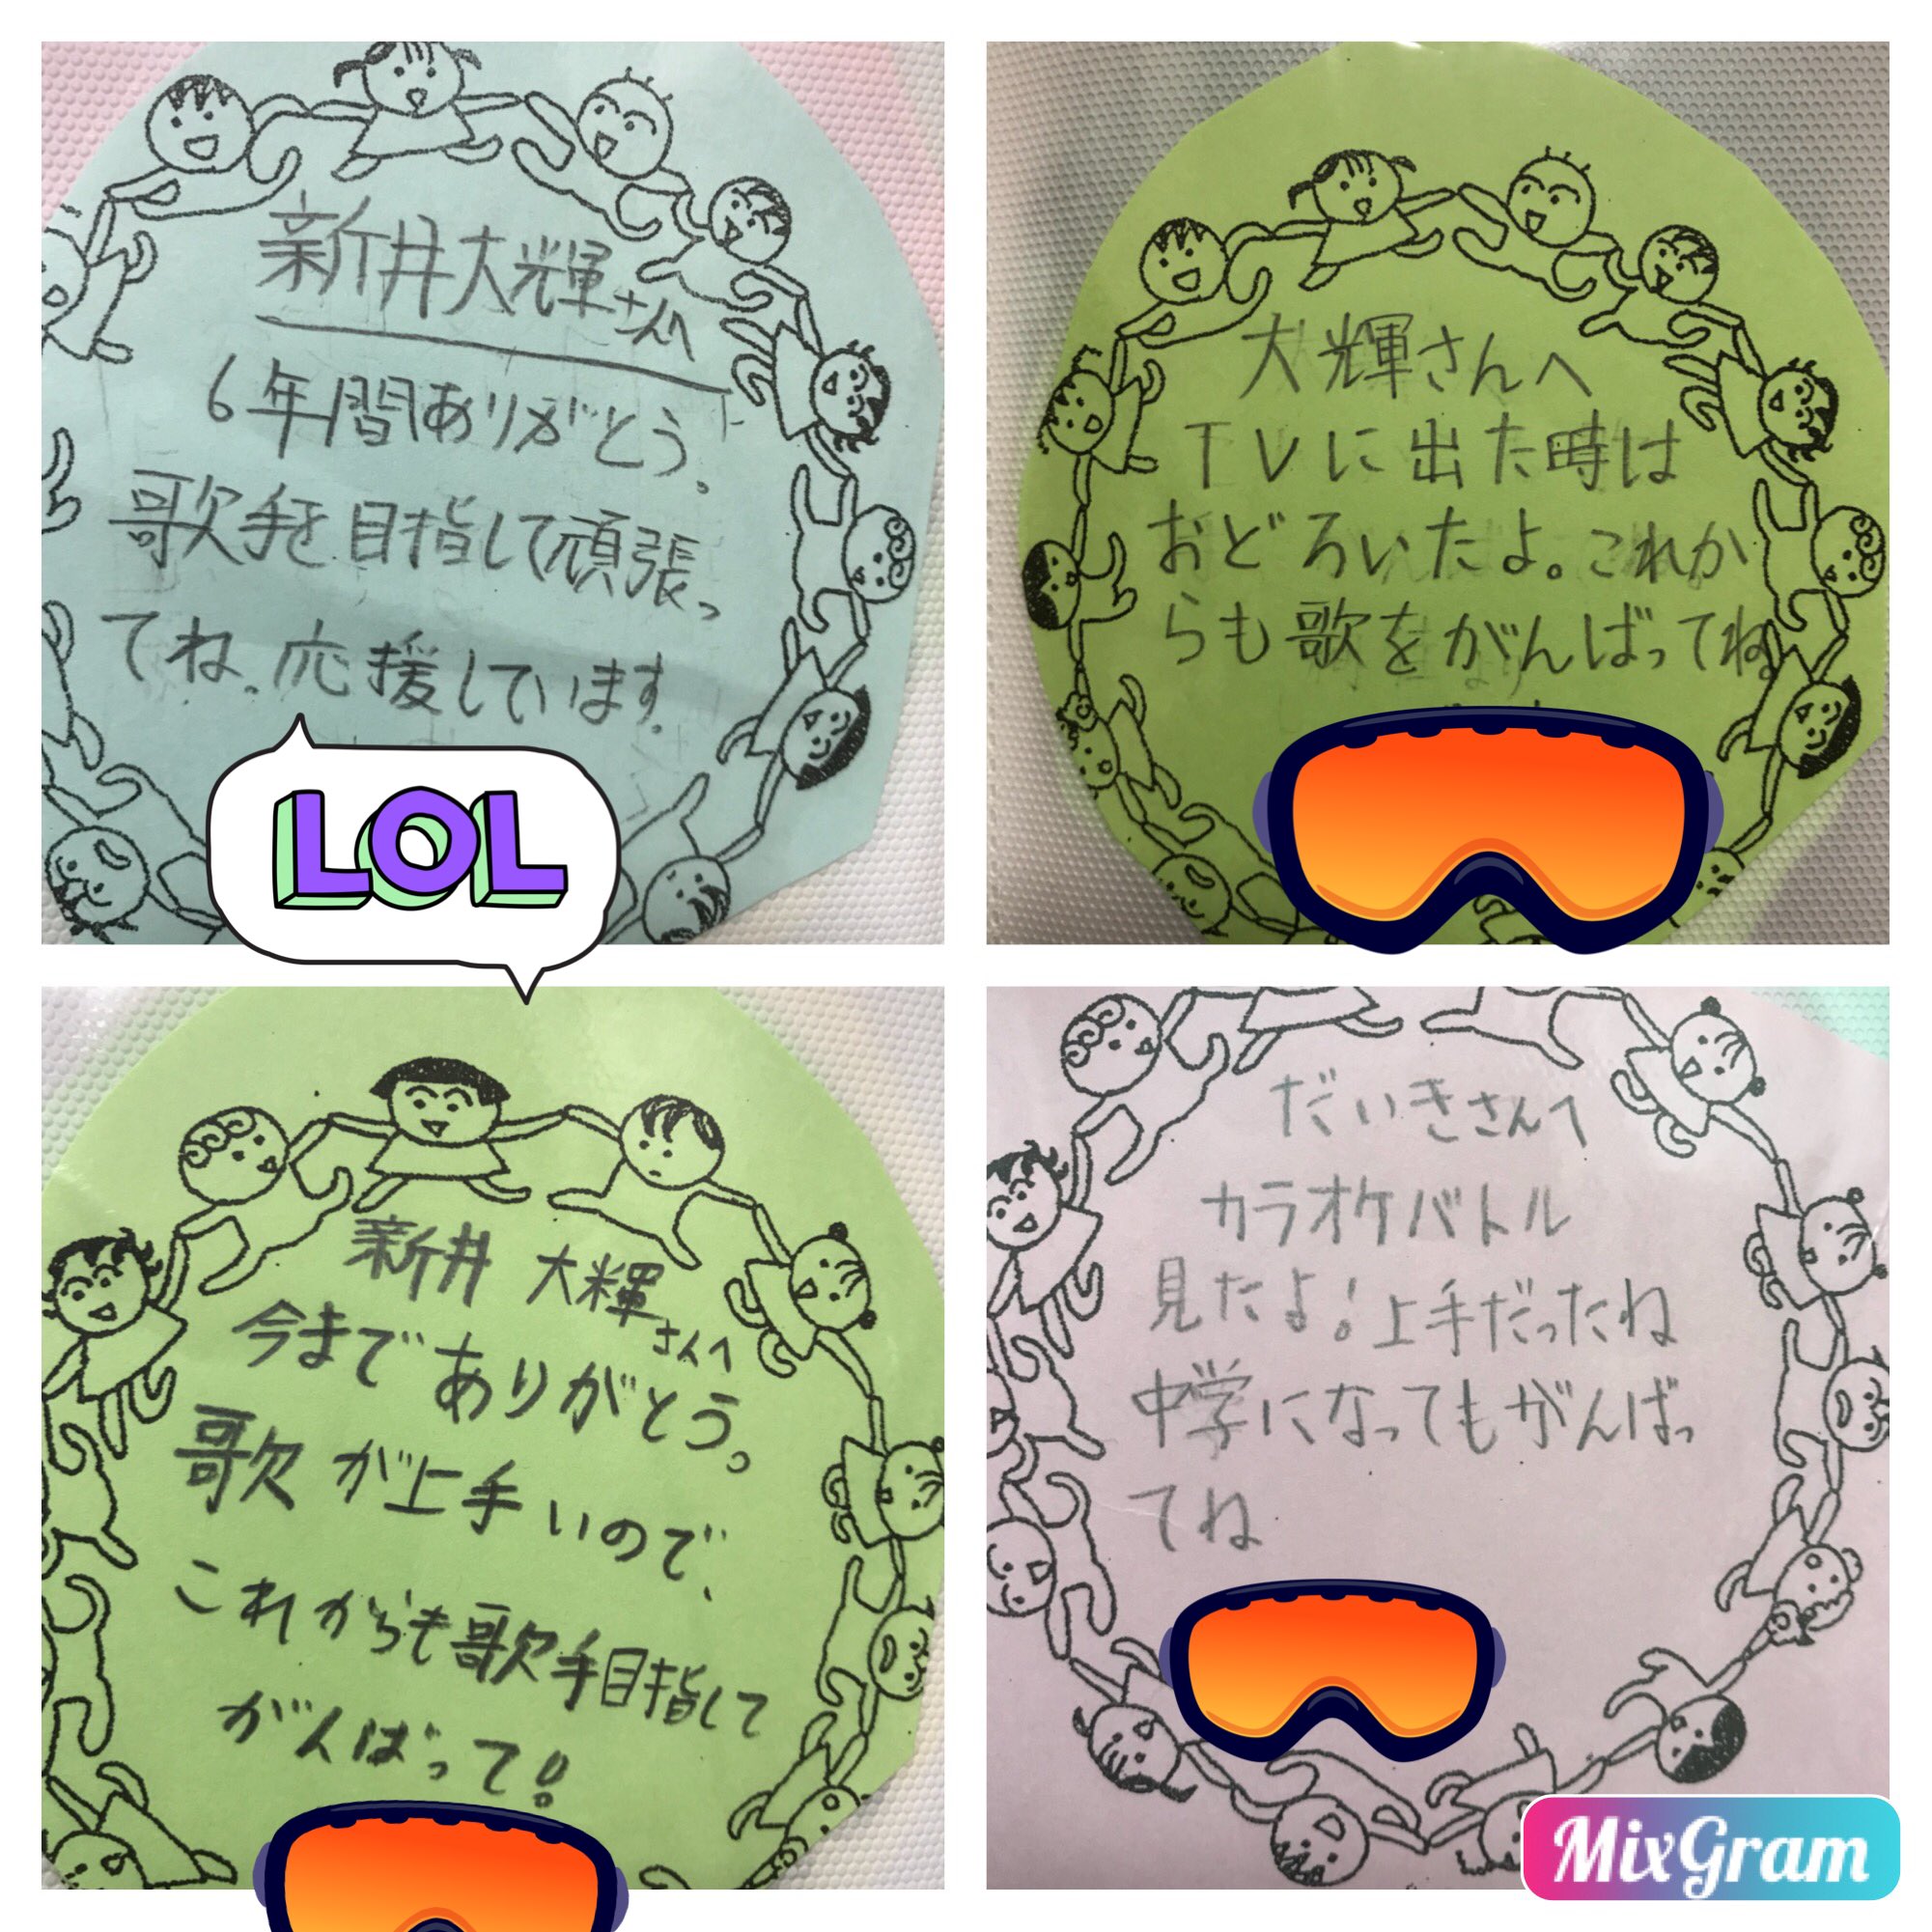 新井大輝さんへ
6年間ありがとう。
歌手を目指して頑張っ
てね。応援しています。
LOL
大輝さんへ
TVに出た時は
おどろいたよ。これか
らも歌をがんばってね
新井 大輝さんへ
今までありがとう。
歌が上手いので、
これからも歌手目指して
がんばって!
だいきさんへ
カラオケバトル
見たよ!上手だったね
中学になってもがんばっ
てね
MixGram